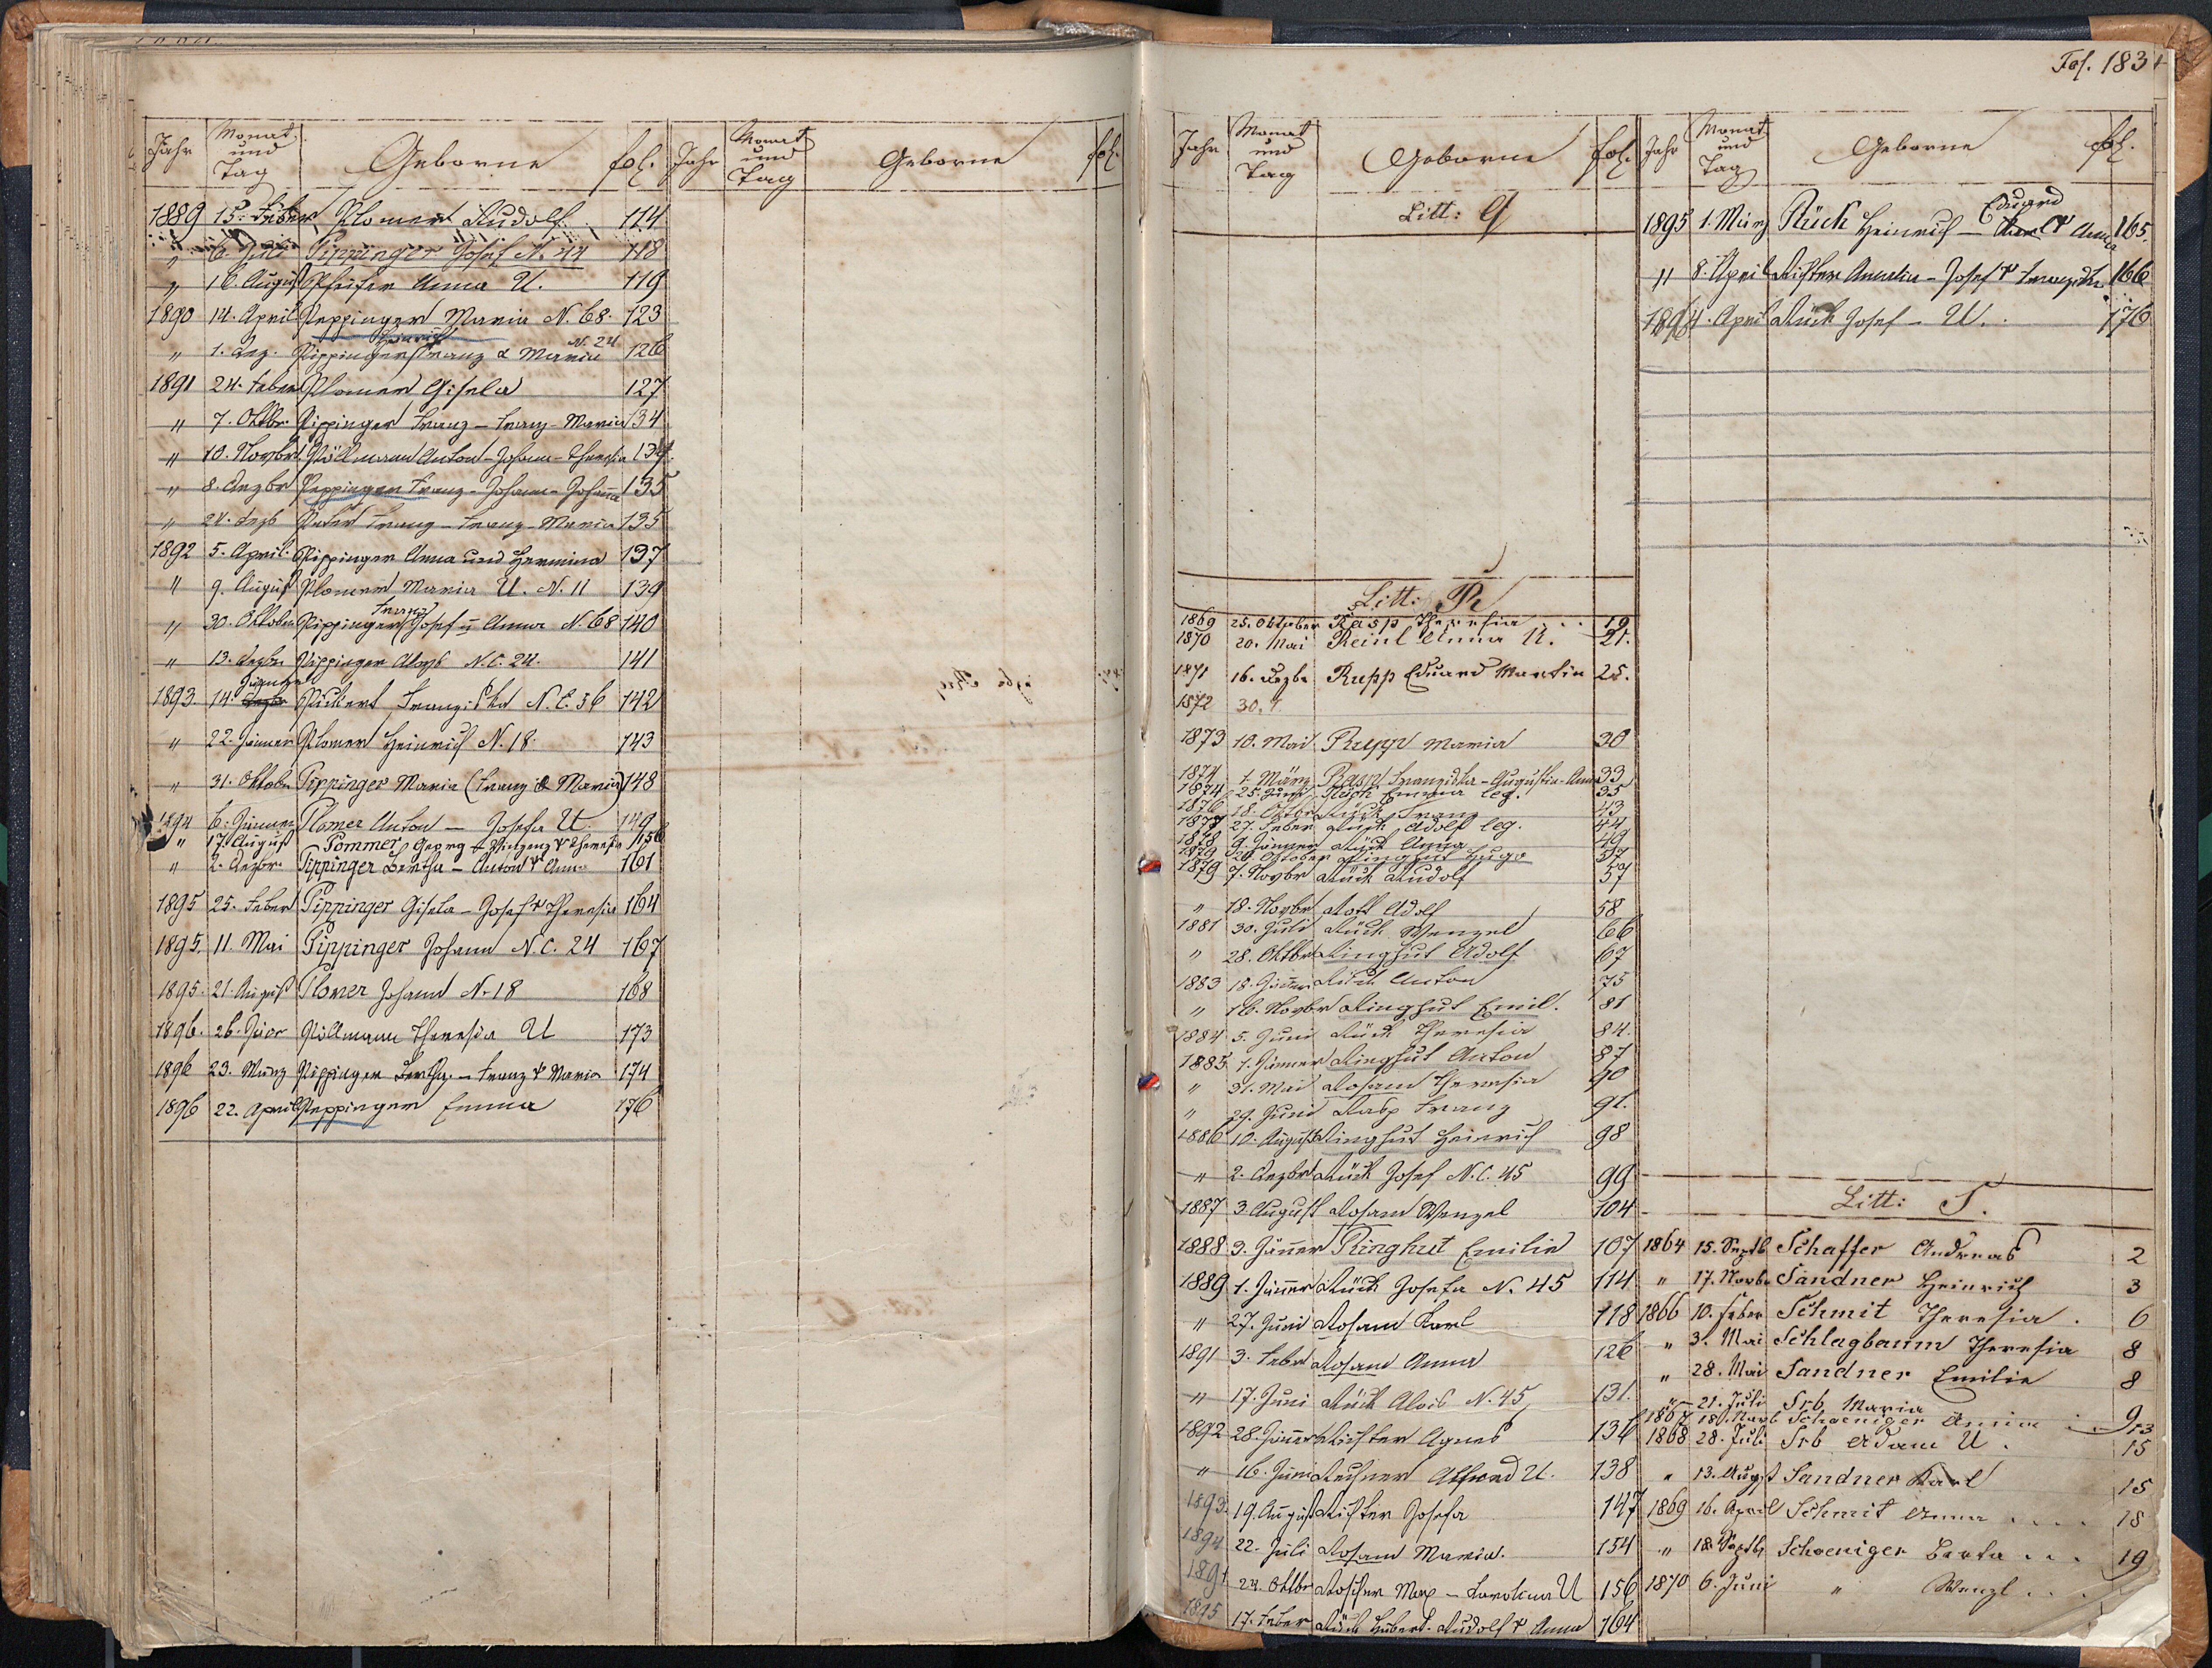 Jahr Monat und Tag Geborne fol.
1889 15. Feber Plomer Rudolf 114
" 6. Juli Pippinger Josef N. 44 118
" 16. August Pfeifer Anna U. 119
1890 14. April Peppinger Maria N. 68. 123
" 1. Dez. Pippinger Franz & Maria N. 24 126
1891 24. Feber Plomer Gisela 127
" 7. Oktbr. Pippinger Franz - Franz - Maria 134
" 10. Novbr. Pöllmann Anton - Johann - Theresia 134.
" 8. Dezbr Peppinger Franz - Johann - Johanna 135
" 24. Dezb Franz - Franz - Maria 135
1892 5. April. Pippinger Anna und Hermina 137
" 9. August Plomer Maria U. N. 11 139
Franz
" 30. Oktober Pippinger Josef u Anna N. 68 140
" 13. Dezbr Pippinger Aloys N.C. 24. 141
Jänner
1893 14. N.C. 56 142
" 22. Jänner Plomer Heinrich N. 18. 143
" 31. Oktober Pippinger Maria (Franz & Maria) 148
1894 6. Jänner Plomer Anton — Josefa U 149
" 17. August Pommer Georg - Vinzenz & Theresia 156
" 2. Dezbr. Pippinger Bertha - Anton & Anna 161
1895 25. Feber Pippinger Gisela - Josef & Theresia 164
1895. 11. Mai Pippinger Johann N.C. 24 167
1895. 21. August Plomer Johann N. 18 168
1896. 26. Jänner Pöllmann Theresia U 173
1896 23. März Pippinger Bertha. - Franz & Maria 174
1896 22. April Peppinger Emma 176
Jahr Monat und Tag Geborne fol.
Fol. 183
Jahr Monat und Tag Geborne fol.
Litt: Q
Litt: R
1869 25. Oktober Rasp Theresia 19
1870 20. Mai Reinl Anna U. 21.
1871 16. Dezbr Rupp Eduard Martin 25.
1872 30.
1873 10. Mai Rupp Maria 30
1874 1. März Franziska - Augustin - Anna 33
1874 25. Juni Rück Emma leg. 35
1876 18. Oktbr Rück Franz 43
1877 27. Feber Rück Adolf leg. 44
1878 9. Jänner Rück Anna 49
1879 20. Oktober Ringhut Hugo 57
1879 7. Novbr Rück Rudolf 57
" 18. Novbr Adolf 58
1881 30. Juli Rück Wenzel 66
" 28. Oktbr Ringhut Adolf 67
1883 18. Jänner Rück Anton 75
" 16. Novbr Ringhut Emil. 81
1884 5. Juni Rück Theresia 84.
1885 1. Jänner Ringhut Anton 87
" 31. Mai Rosam Theresia 90
" 29. Juni Rasp Franz 91.
1886 10. August Ringhut Heinrich 98
" 2. Dezbr Rück Josef N.C. 45 99
1887 3. August Rosam Wenzel 104
1888 3. Jänner Ringhut Emilie 107
1889 1. Jänner Rück Josefa N. 45 114
" 27. Juni Rosam Karl 118
1891 3. Feber Rosam Anna 126
" 17. Juni Rück Alois N. 45 131.
1892 28. Jänner Richter Agnes 136
" 16. Juni U. 138
1893 19. August Richter Josefa 147
1894 22. Juli Rosam Maria. 154
1894 24. Oktbr Max - Karolina U 156
1895 17. Feber Rück Hubert - Rudolf & Anna 164
Jahr Monat und Tag Geborne fol.
Eduard
1895 1. März Rück Heinrich - & Anna 165.
" 8. April Richter Amalia - Josef & Franziska 166
1896 4. April Rück Josef - U. 176
Litt: S.
1864 15. Septb Schaffer Andreas 2
" 17. Novbr Sandner Heinrich 3
1866 10. Feber Schmit Theresia. 6
" 3. Mai Schlagbaum Theresia 8
" 28. Mai Sandner Emilie 8
" 21. Juli Srb Maria 9
1867 18. Novb Schoeniger 13
1868 28. Juli Srb Adam U. 15
" 13. Augst Sandner Karl 15
1869 16. April Schmit Anna .... 18
" 18. Septb Schoeniger Berta ... 19
1870 6. Juni " Wenzl ..